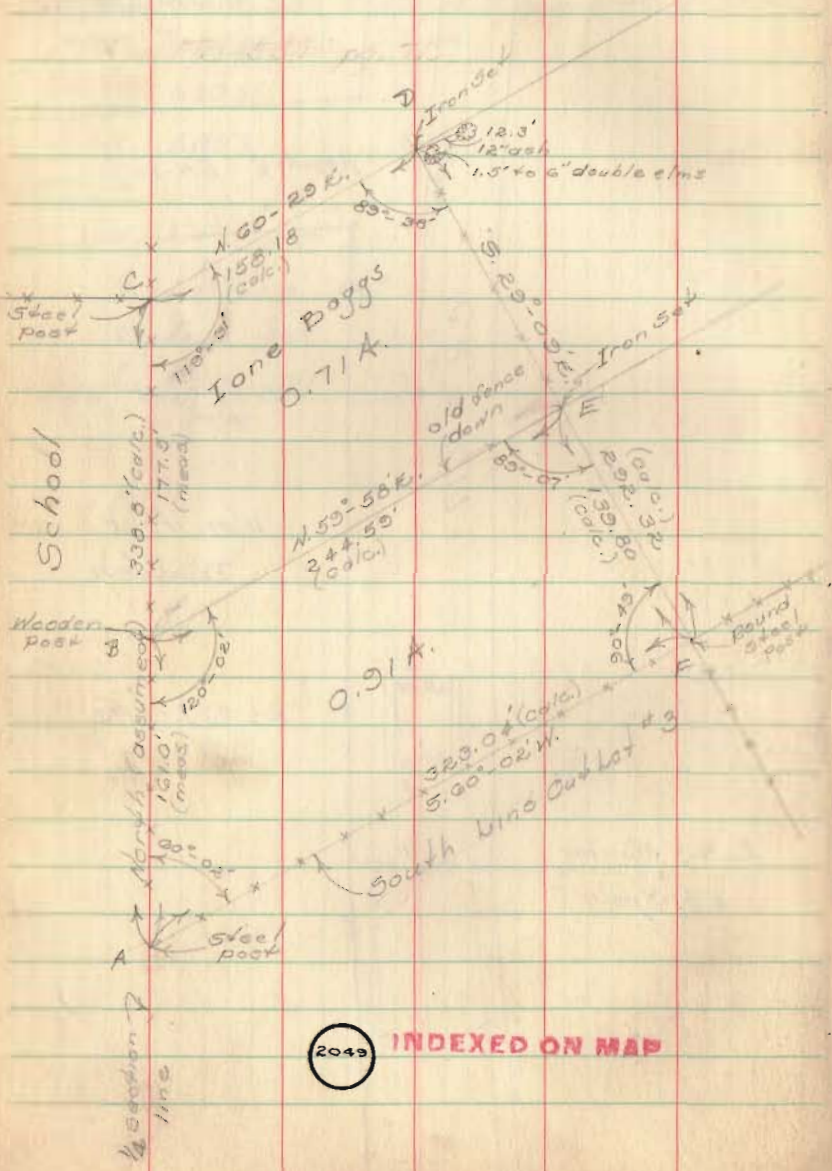 D
Iron Set
12.3'
12" ash
1.5' to 6" double elms
N. 60-29 E.
158.18
(calc.)
89°-38'
C
Steel
post
119°-31'
Ione Boggs
0.71 A.
S. 29°-09' E.
Iron Set
E
old fence
down
School
338.5' (calc.)
177.5'
(meas)
N. 59°-58' E.
244.59'
(calc.)
89°-07'
(calc.)
292.32
139.80
(calc.)
Wooden
post
B
120°-02'
90°-49'
Found
steel
post
F
0.91 A.
North (assumed)
161.0'
(meas)
323.04' (calc.)
S. 60°-02' W.
South Line Out Lot #3
60°-02'
A
Steel
post
1/4 Section
line
2049
INDEXED ON MAP